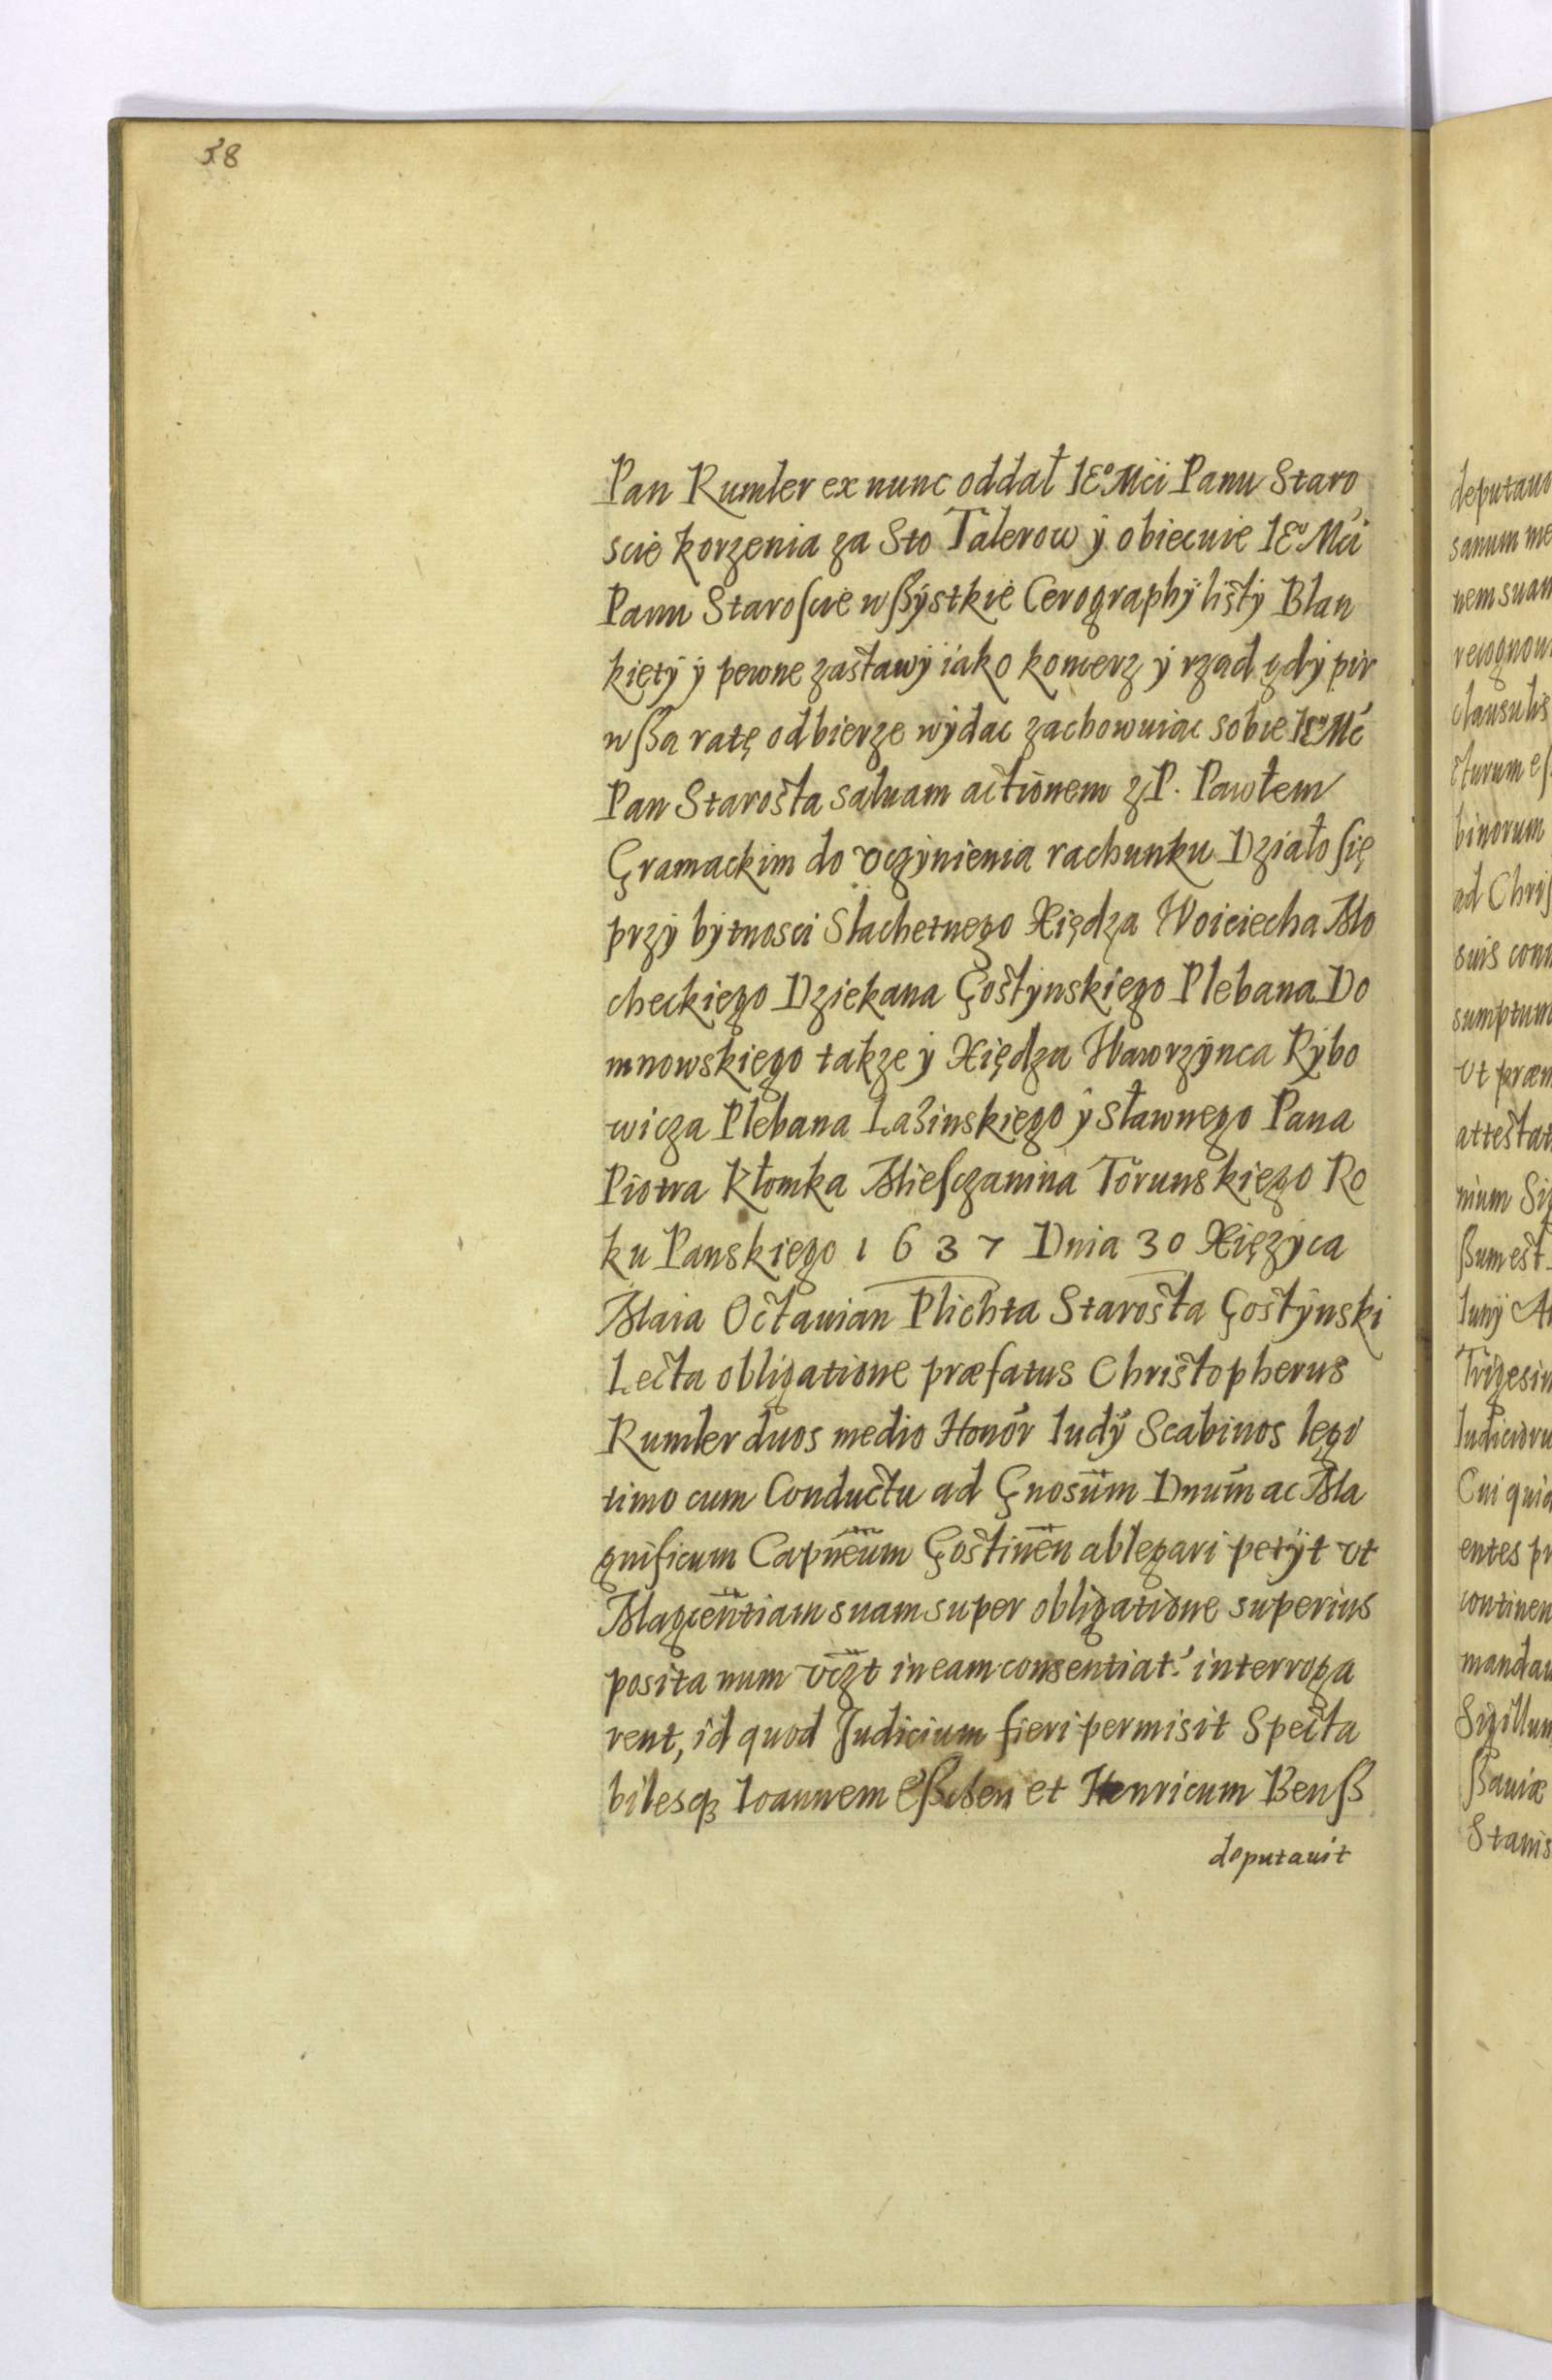 58
Pan Rumler ex nunc oddał IEº Mći Panu Staro
scie korzenia za Sto Talerow ÿ obiecuie IEº Mći
Panu Staroſcie wſzÿstkie Cerographÿ listÿ Blan
kietÿ ÿ pewne zastawÿ iako koncerz ÿ rzad gdÿ pir
wſza ratę odbierze wÿdac zachowuiac sobie IEº Mć
Pan Starosta saluam actionem z P. Pawłem
Gramackim do vczÿnienia rachunku Działo ſię
przÿ bÿtnosci Slachetnego Xiędza Woiciecha Mo
checkiego Dziekana Gostÿnskiego Plebana Do
mnowskiego takze ÿ Xiędza Wawrzÿnca Rÿbo
wicza Plebana Lazinskiego ÿ Sławnego Pana
Piotra Kłomka Mieſczanina Torunskiego Ro
ku Panskiego 1637 Dnia 30 Xięzÿca
Maia Octauian Plichta Starosta Gostÿnski
Lecta obligatione præfatus Christopherus
Rumler duos medio Honór Iudÿ Scabinos legi
timo cum Conductu ad Gnosum̃ Dnum̃ ac Ma
gnificum Capneum̃ Gostineñ ablegari petÿt vt
Magceñtiam suam super obligatione superius
posita num vczt in eam consentiat: interroga
rent, id quod Judicium fieri permisit Specta
bilesq3 Ioannem Eſschen et Henricum Benſz
deputauit
deputaui
sanum me
nem suam
recognou
clausulis
cturum eſ
binorum
ad Chriſ
suis con
sumptum
vt præm
attestat
nium Sig
ſsum est
Iunÿ A
Trigesim
Iudicioru
Cui quid
entes pr
continen
mandau
Sigillum
ſsauiæ
Stanis